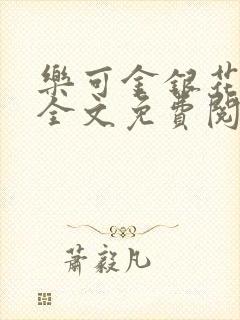 樂可金銀花
全文免費閱
蕭毅凡